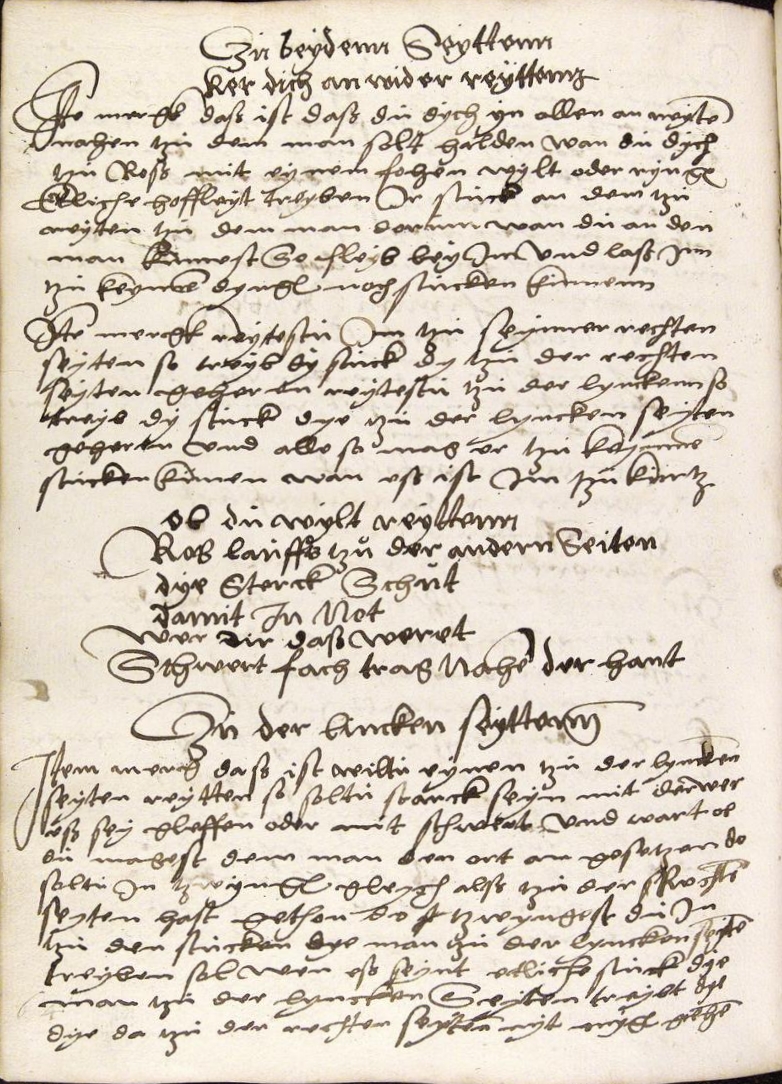 Zu beydenn Seyttenn
Ker dich an wider reyttenn
Ite merck daß ist daß du dych yn allen an reyten
nahen tzu dem man solt halden wan du dych
tzu Ross mit eynem fohen wylt oder ryngen
Etliche hoffleyt treyben Ir stuck an dem tzu
reyten tzu dem man dorum wan du an den
man kumest So pleyb bey Im Und lass Im
tzu keynen dyngen noch stucken kummenn
Ite merckt reytestu Im tzu seynner rechten
seyten so treyb dy stuck dy tzu der rechten
seyten gehoren reytestu tzu der lynckenn so
treyb dy stuck dye tzu der lyncken seyten
gehoren Und alleso mag er tzu keynne
stucken kumen wan ess ist Im tzu kurtz
ob du wylt reyttenn
Ross lauffs tzu der andern Seiten
dye Sterck Schut
damit In Not
wer dir dass weret
Schwert fach trag Nahe der hant
Zu der lincken seyttenn
Item merck dass ist wiltu eynen tzu der lyncken
seyten reytten so soltu starck seyn mit der wer
ess sey gleffen oder mit schwert Und wart ob
du magest dem man den ort an gesetzen do
soltu In tzwyngen gleych alss tzu der Rechte
seyten hast gethon do tzwyngest du In
tzu den stucken dye man tzu der lyncken seyte
treyben sol wen ess seynt etliche stuck dye
man tzu der lyncken Seyten treybt dye
dye da tzu der rechten seyten nyt mygen gehen